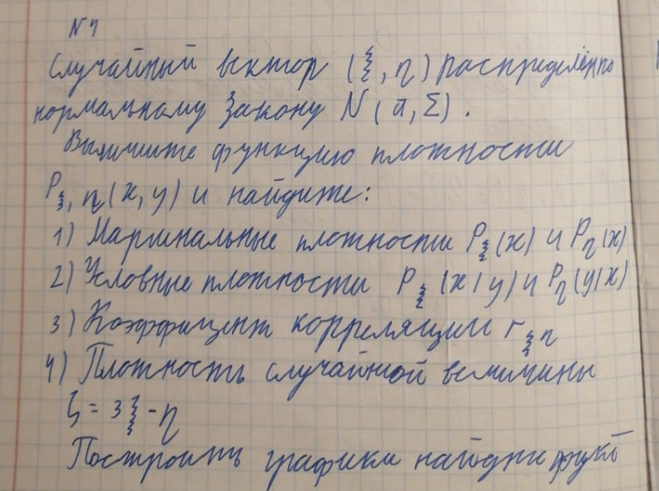 N 4
Случайный вектор (ξ, η) распределён по
нормальному закону N(ā, Σ).
Выпишите функцию плотности
P ξ, η (x, y) и найдите:
1) Маргинальные плотности P ξ (x) и P η (x)
2) Условные плотности P ξ (x|y) и P η (y|x)
3) Коэффициент корреляции r ξ η
4) Плотность случайной величины
ζ = 3ξ - η
Построить графики